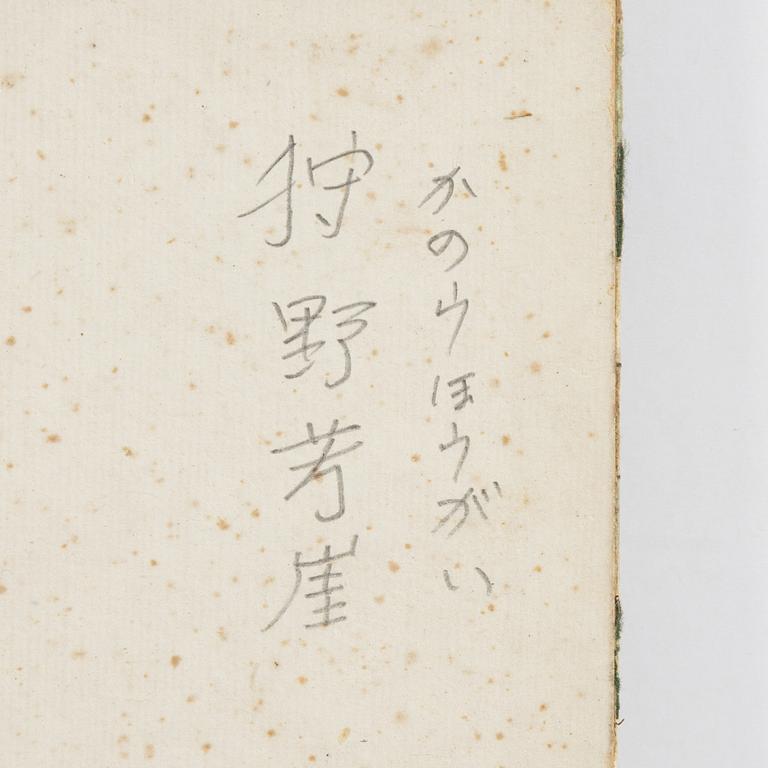 かのウほウがい
狩野芳崖